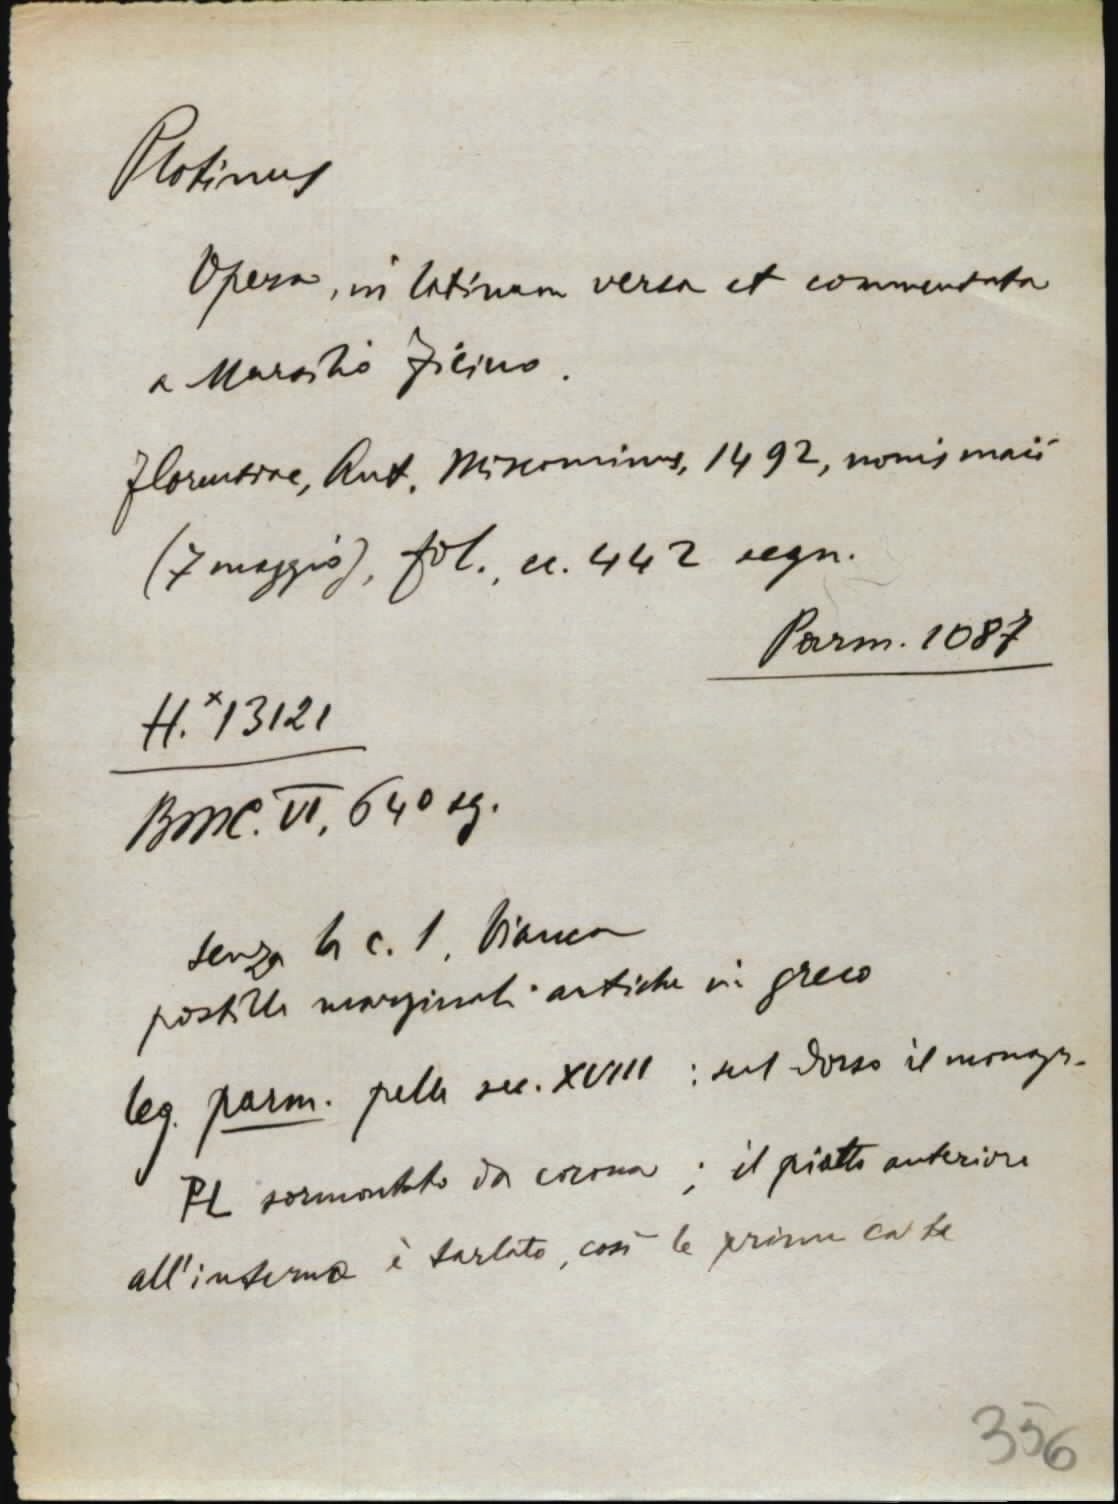 Plotinus
Opera, in latinum versa et commentata
a Marsilio Ficino.
Florentiae, Ant. Miscominus, 1492, nonis maii
(7 maggio), fol., cc. 442 segn.
Parm. 1087
H.* 13121
BMC. VI, 640 sg.
senza la c. 1, bianca
postille marginali antiche in greco
leg. parm. pelle sec. XVIII : sul dorso il monogr.
PL sormontato da corona ; il piatto anteriore
all'interno è tarlato, così le prime carte
356